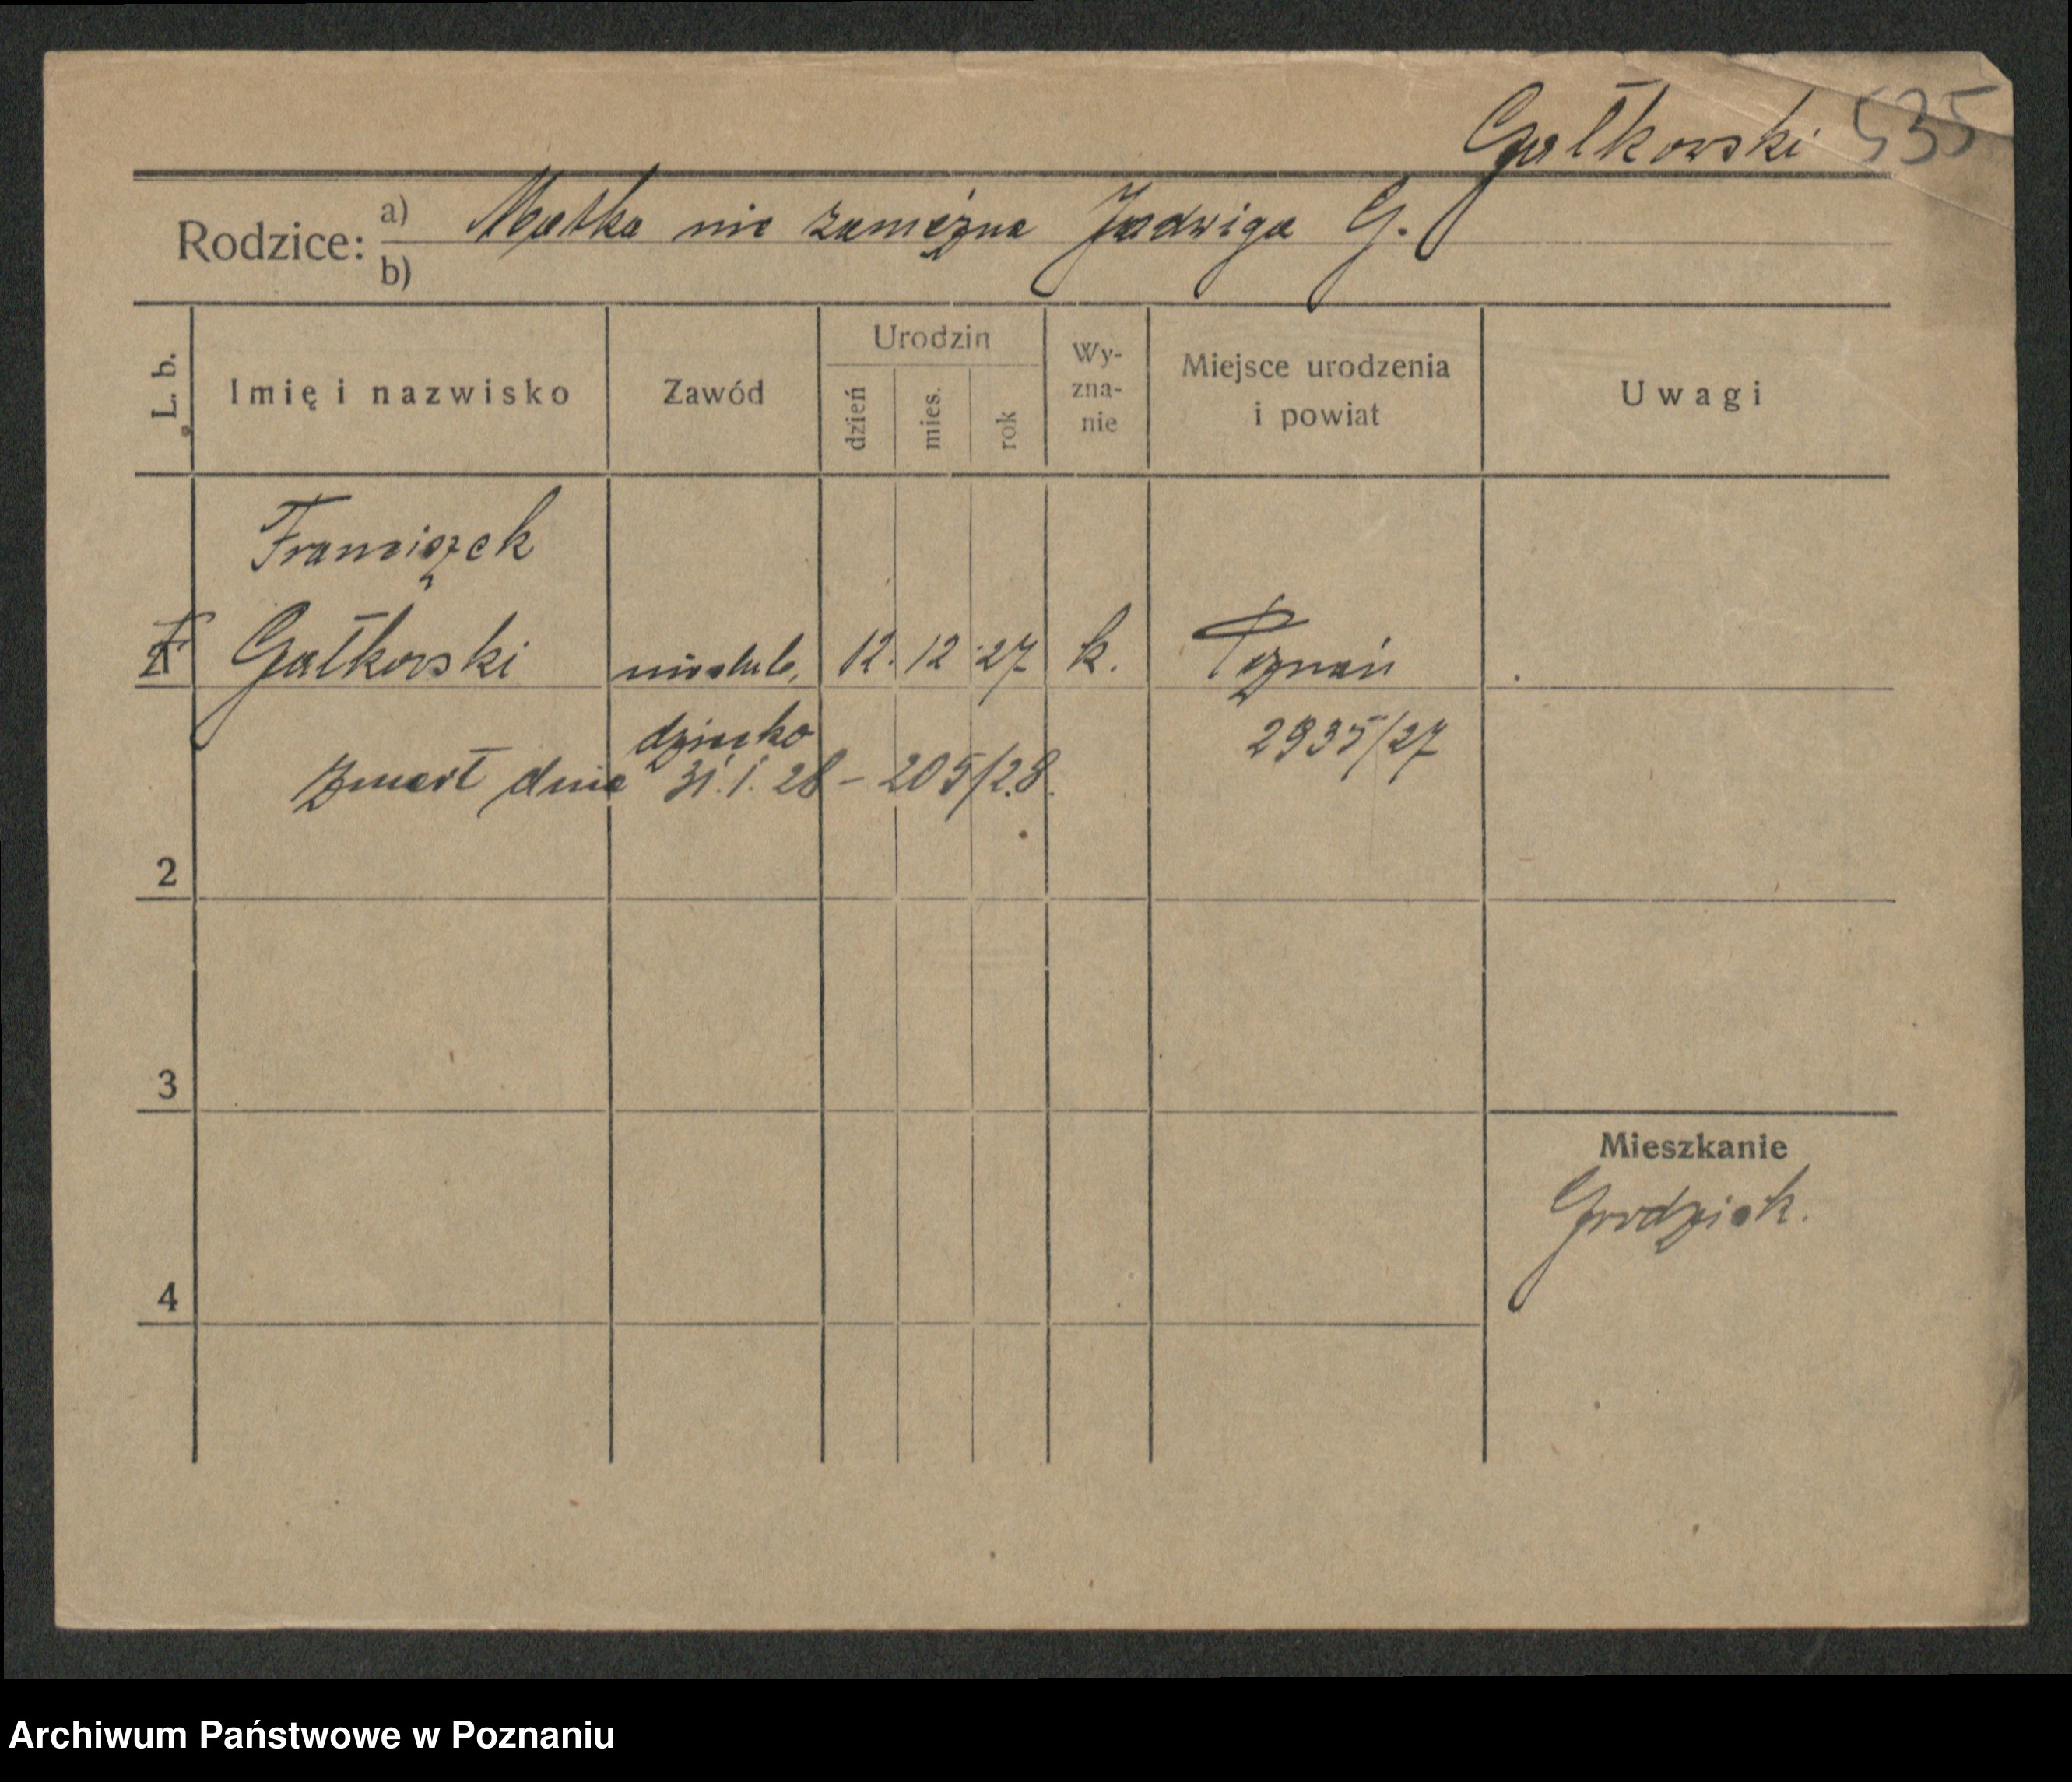 Gałkowski 535
Rodzice: a) Matka nie zamężna Jadwiga G.
b)
L. b. Imię i nazwisko Zawód Urodzin dzień mies. rok Wy-zna-nie Miejsce urodzenia i powiat Uwagi
Franciszek
1 Gałkowski nieślub. 12. 12 27 k. Poznań
dziecko 2935/27
zmarł dnia 31. I. 28 – 205/28.
2
3
Mieszkanie
Grodzisk.
4
Archiwum Państwowe w Poznaniu